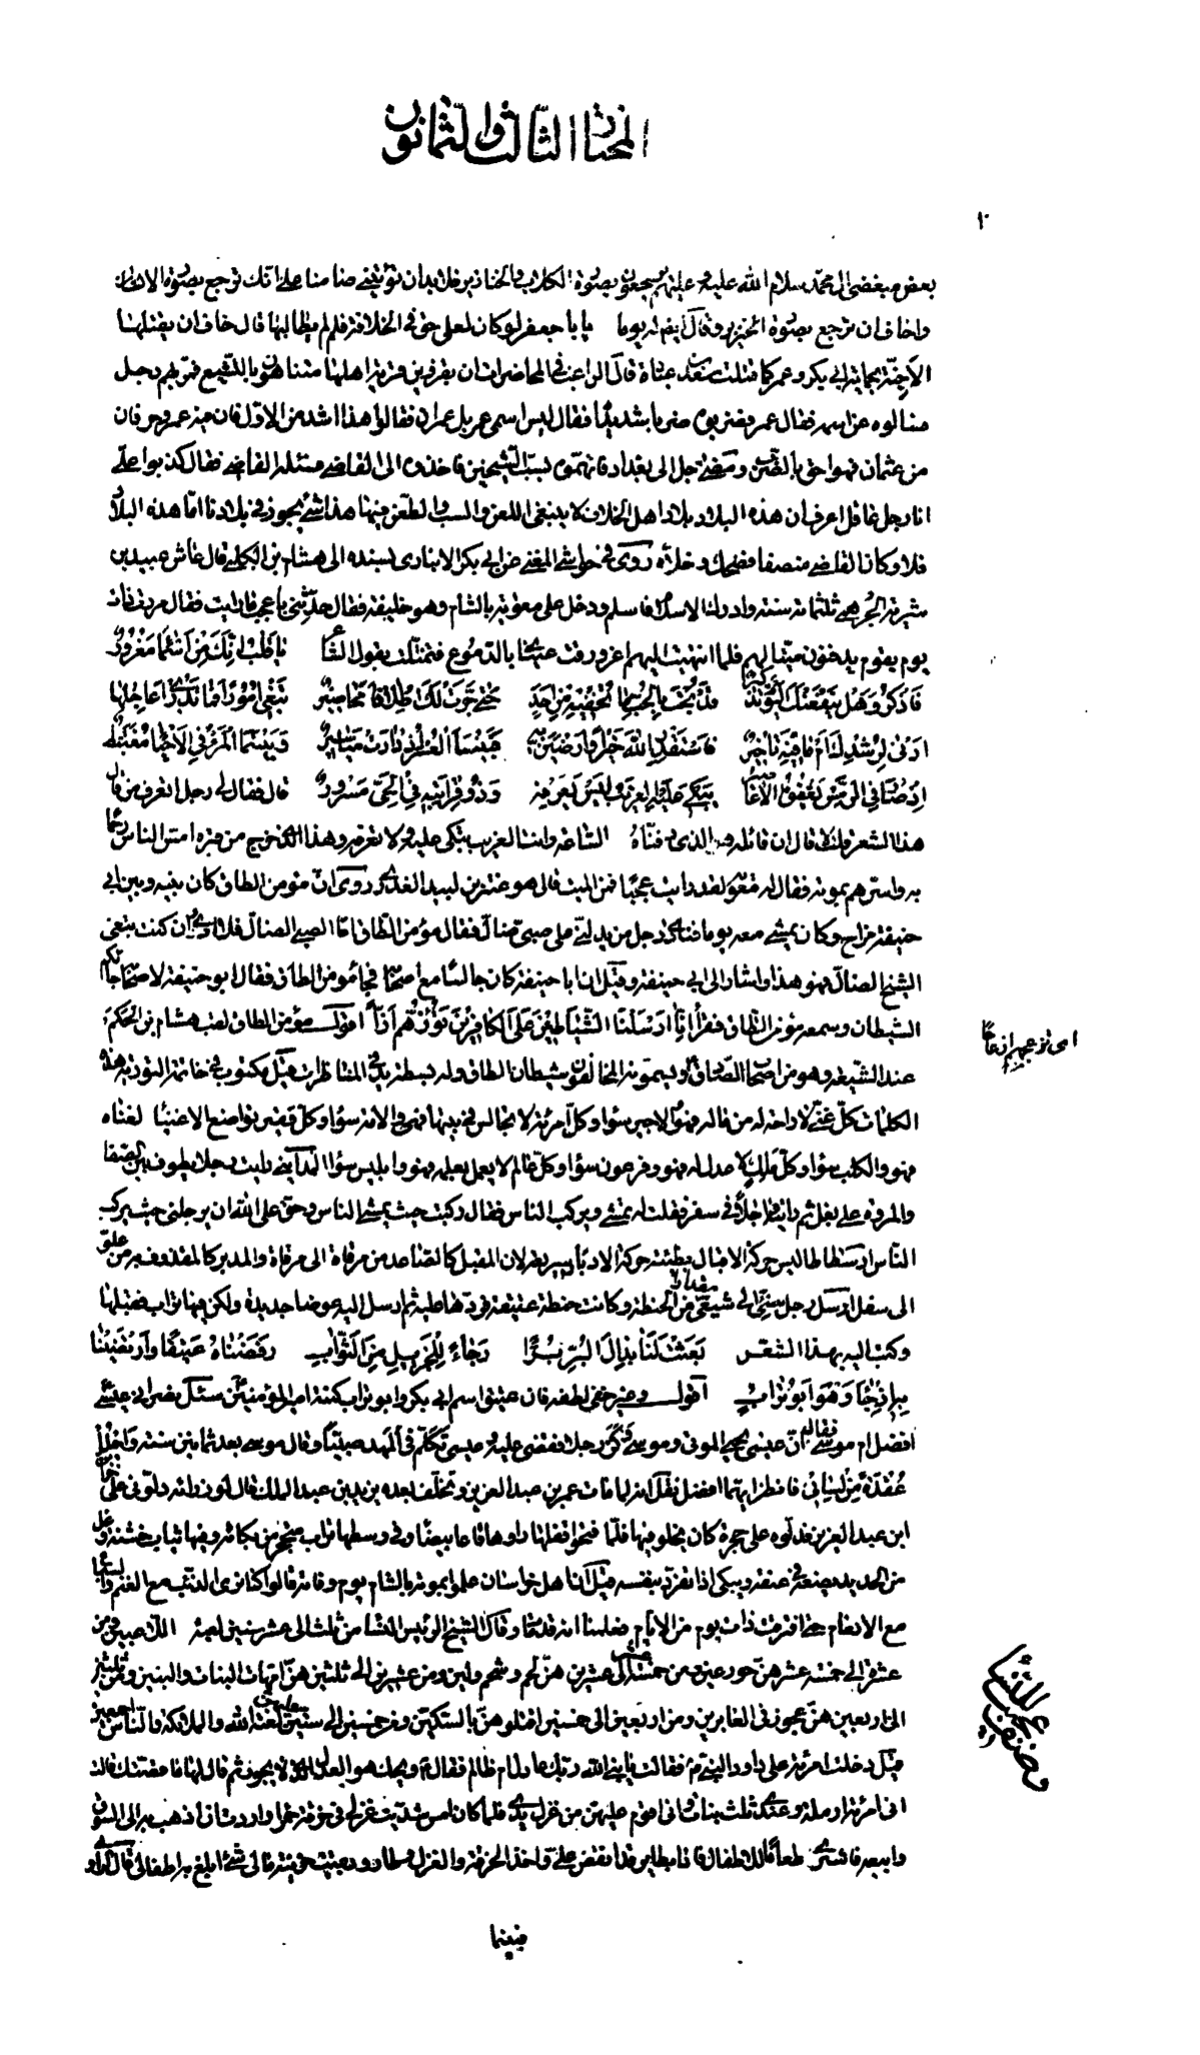 المختار الثالث والثمانون
١٠
بعض مبغضي ال محمد سلام الله عليه وعليهم يرجعون بصورة الكلاب والخنازير فلابدان توثقني ضامنا على انك ترجع بصورة الانسان
واخاف ان ترجع بصورة الخنزير وقال ايضا له يوما يا با جعفر لو كان لعلي حق في الخلافة فلم لم يطالبها قال خاف ان يقتلهنا
الاجنة بحماية ابي بكر وعمر كما قتلت سعد عبادة قال الراغب في المحاضرات ان بقزوين قرية اهلها متناهون بالتشيع فمر بهم رجل
فسالوه عن اسمه فقال عمر فضربوه ضربا شديدا فقال ليس اسمي عمر بل عمران فقالوا هذا اشد من الاول فان فيه عمر وحرفان
من عثمان فهو احق بالضرب ومضى رجل الى بغداد فاتهموه بسب الشيخين فاخذوه الى القاضي فسئله القاضي فقال كذبوا علي
انا رجل عاقل اعرف ان هذه البلاد بلاد اهل الخلاف لا ينبغي اللعن والسب والطعن فيها هذا شيء يجوز في بلادنا اما هذه البلاد
فلا وكان القاضي منصفا فضحك وخلاه روى في حواشي المغني عن ابي بكر الانباري بسنده الى هشام بن الكلبي قال عاش عبيد بن
شرية الجرهمي ثلثمائة سنة وادرك الاسلام فاسلم ودخل على معوية بالشام وهو خليفة فقال حدثني باعجب ما رايت فقال مررت ذات
يوم بقوم يدفنون ميتا لهم فلما انتهيت اليهم اغرورقت عيناي بالدموع فتمثلت بقول الشاعر يا قلب انك من اسماء مغرور
فاذكر وهل ينفعنك اليوم تذكير قد بحت بالحب ما تخفيه من احد حتى جرت لك اطلاقا محاضير تبغي امورا فما تدري اعاجلها
ادنى لرشدك ام ما فيه تاخير فاستقدر الله خيرا وارضين به فبينما العسر اذ دارت مياسير وبينما المرء في الاحياء مغتبط
اذ صار في الرمس تعفوه الاعاصير يبكي عليه الغريب وليس يعرفه وذو قرابته في الحي مسرور قال فقال لي رجل اتعرف من قال
هذا الشعر قلت لا قال ان قائله هو الذي دفناه الساعة وانت الغريب تبكي عليه ولا تعرفه وهذا الذي خرج من قبره امس الناس رحما
به واسرهم بموته فقال له معوية لقد رايت عجبا فمن الميت قال هو عثير بن لبيد العذري روى ان مؤمن الطاق كان بينه وبين ابي
حنيفة مزاح وكان يمشي معه يوما فنادى رجل من يدلني على صبي ضال فقال مؤمن الطاق اما الصبي الضال فلا ادري وان كنت تبغي
الشيخ الضال فهو هذا واشار الى ابي حنيفة وقيل ان ابا حنيفة كان جالسا مع اصحابه فجاء مؤمن الطاق فقال ابو حنيفة لاصحابه جائكم
الشيطان وسمعه مؤمن الطاق فقرا انا ارسلنا الشياطين على الكافرين تؤزهم ازا اقول مؤمن الطاق لقب هشام بن الحكم
اي تزعجهم ازعاجا
عند الشيعة وهو من اصحاب الصادق ويسمونه المخالفون شيطان الطاق وله بسطة يد في المناظرات قيل مكتوب في خاتمة التورية هذه
الكلمات كل غني لا راحة له من ماله فهو والاجير سواء وكل امرءة لا تجالس في بيتها فهي والامة سواء وكل فقير تواضع لاغنياء لغناه
فهو والكلب سواء وكل ملك لا عدل له فهو وفرعون سواء وكل عالم لا يعمل بعلمه فهو وابليس سواء المدايني رايت رجلا يطوف بين الصفا
والمروة على بغل ثم رايته راجلا في سفر فقلت له تمشي ويركب الناس فقال ركبت حيث يمشي الناس وحق على الله ان يرجلني حيث يركب
الناس ارسطاطاليس حركة الاقبال بطيئة حركة الادبار سريعة لان المقبل كالصاعد من مرقاة الى مرقاة والمدبر كالمقذوف به من علو
الى سفل ارسل رجل سني الى شيعي مقدارا من الحنطة وكانت حنطة عتيقة فردها عليه ثم ارسل اليه عوضا جديدة ولكن فيها تراب فقبلها
وكتب اليه بهذا الشعر بعثت لنا بذال البر برا رجاء للجزيل من الثواب رفضناه عتيقا وارتضينا
به اذ جاء وهو ابو تراب اقول وفيه خفى لطفه فان عتيق اسم ابي بكر وابو تراب كنية امير المؤمنين سئل نصراني عيسى
افضل ام موسى فقال ان عيسى يحيي الموتى وموسى وكز رجلا فقضى عليه وعيسى تكلم في المهد صبيا وقال موسى بعد ثمانين سنة واحلل
عقدة من لساني فانظر ايهما افضل نقل انه لما مات عمر بن عبد العزيز وتخلف بعده يزيد بن عبد الملك قال
ابن عبد العزيز فدلوه على حجرة كان يخلو فيها فلما فتحوا قفلها راوها قاعا بيضا وفي وسطها تراب متحجر من بكائه وفيها ثياب خشنة وغل
من الحديد يضعه في عنقه ويبكي اذا تفرد بنفسه قيل ان اهل خراسان علموا بموته بالشام يوم وفاته قالوا كنا نرى الذئب مع الغنم والسباع
مع الانعام حتى افترقت ذات يوم من الايام فعلمنا انه قد مات وقال الشيخ الرئيس النساء من ثلث الى عشر سنين لعبة اللاعبين ومن
عجز النساء وصنفهن
عشرة الى خمسة عشر هن حور عين ومن خمسة عشر الى عشرين هن لحم وشحم ولين ومن عشرين الى ثلثين هن امهات البنات والبنين ومن ثلثين
الى اربعين هن عجوز في الغابرين ومن اربعين الى خمسين اقتلوهن بالسكين ومن خمسين الى ستين عليهن لعنة الله والملائكة والناس اجمعين
قيل دخلت امرءة على داود النبي فقالت يا نبي الله ربك عادل ام ظالم فقال ويحك هو العدل الذي لا يجوز ثم قال لها ما قصتك قالت
اني امرءة ارملة وعندي ثلث بنات واني اقوم عليهن من غزل يدي فلما كان امس شديت غزلي في خرقة حمراء واردت ان اذهب به الى السوق
وابيعه فاشتري طعاما للاطفال فاذا بطاير قد انقض علي واخذ الخرقة والغزل وطار وبقيت حزينة مالي شيء ابلغ به اطفالي قال
فبينما